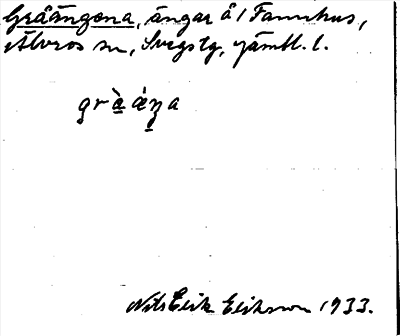 Gråängena, ängar å 1 Fannhus,
Älvros sn, Svegstg, Jämtl. l.
grà̱ áŋ̱a
Nils Erik Eriksson 1933.